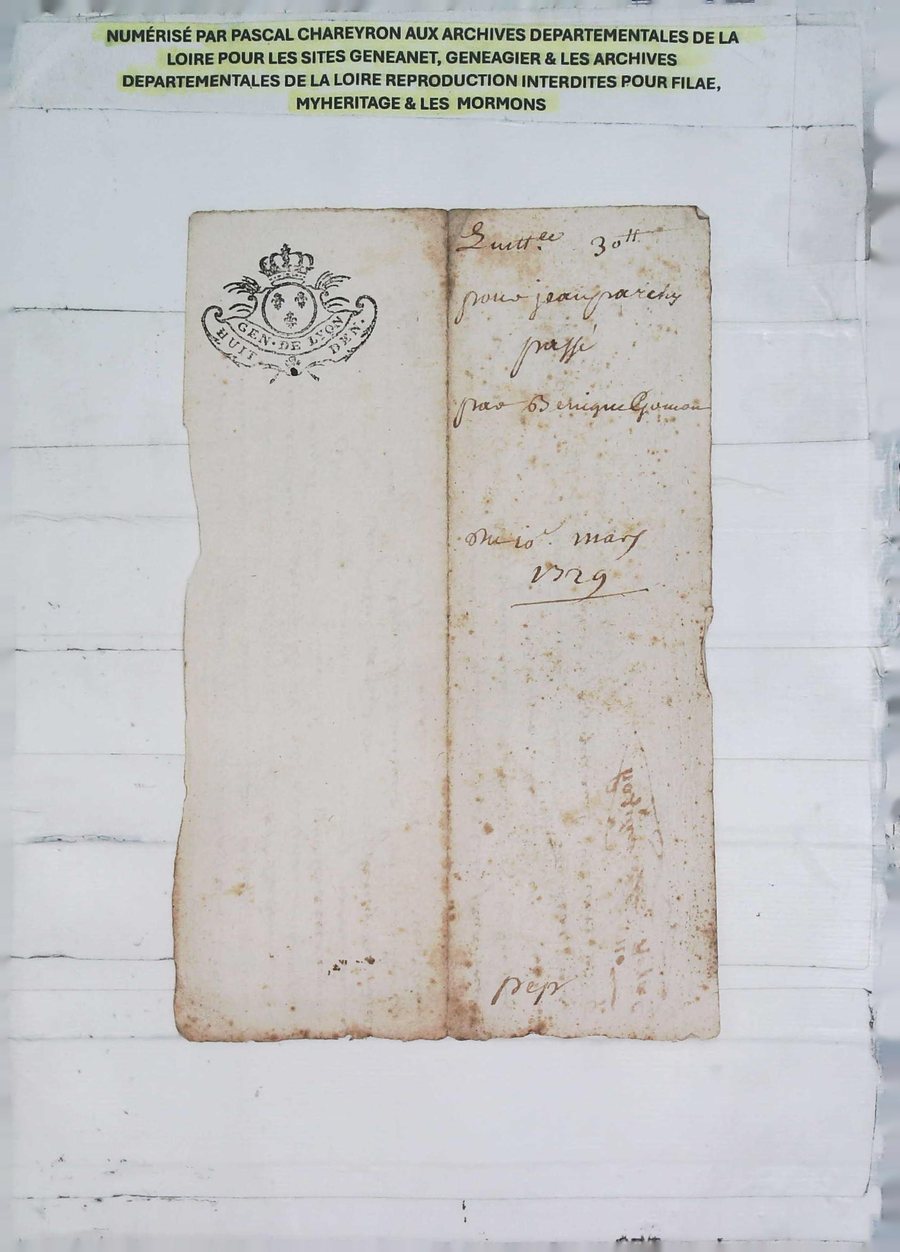 NUMÉRISÉ PAR PASCAL CHAREYRON AUX ARCHIVES DEPARTEMENTALES DE LA
LOIRE POUR LES SITES GENEANET, GENEAGIER & LES ARCHIVES
DEPARTEMENTALES DE LA LOIRE REPRODUCTION INTERDITES POUR FILAE,
MYHERITAGE & LES MORMONS
GEN · DE LYON
HUIT DEN ·
Quitt.ce 30 tt
pour jean parchy
passé
par
du 10e mars
1729